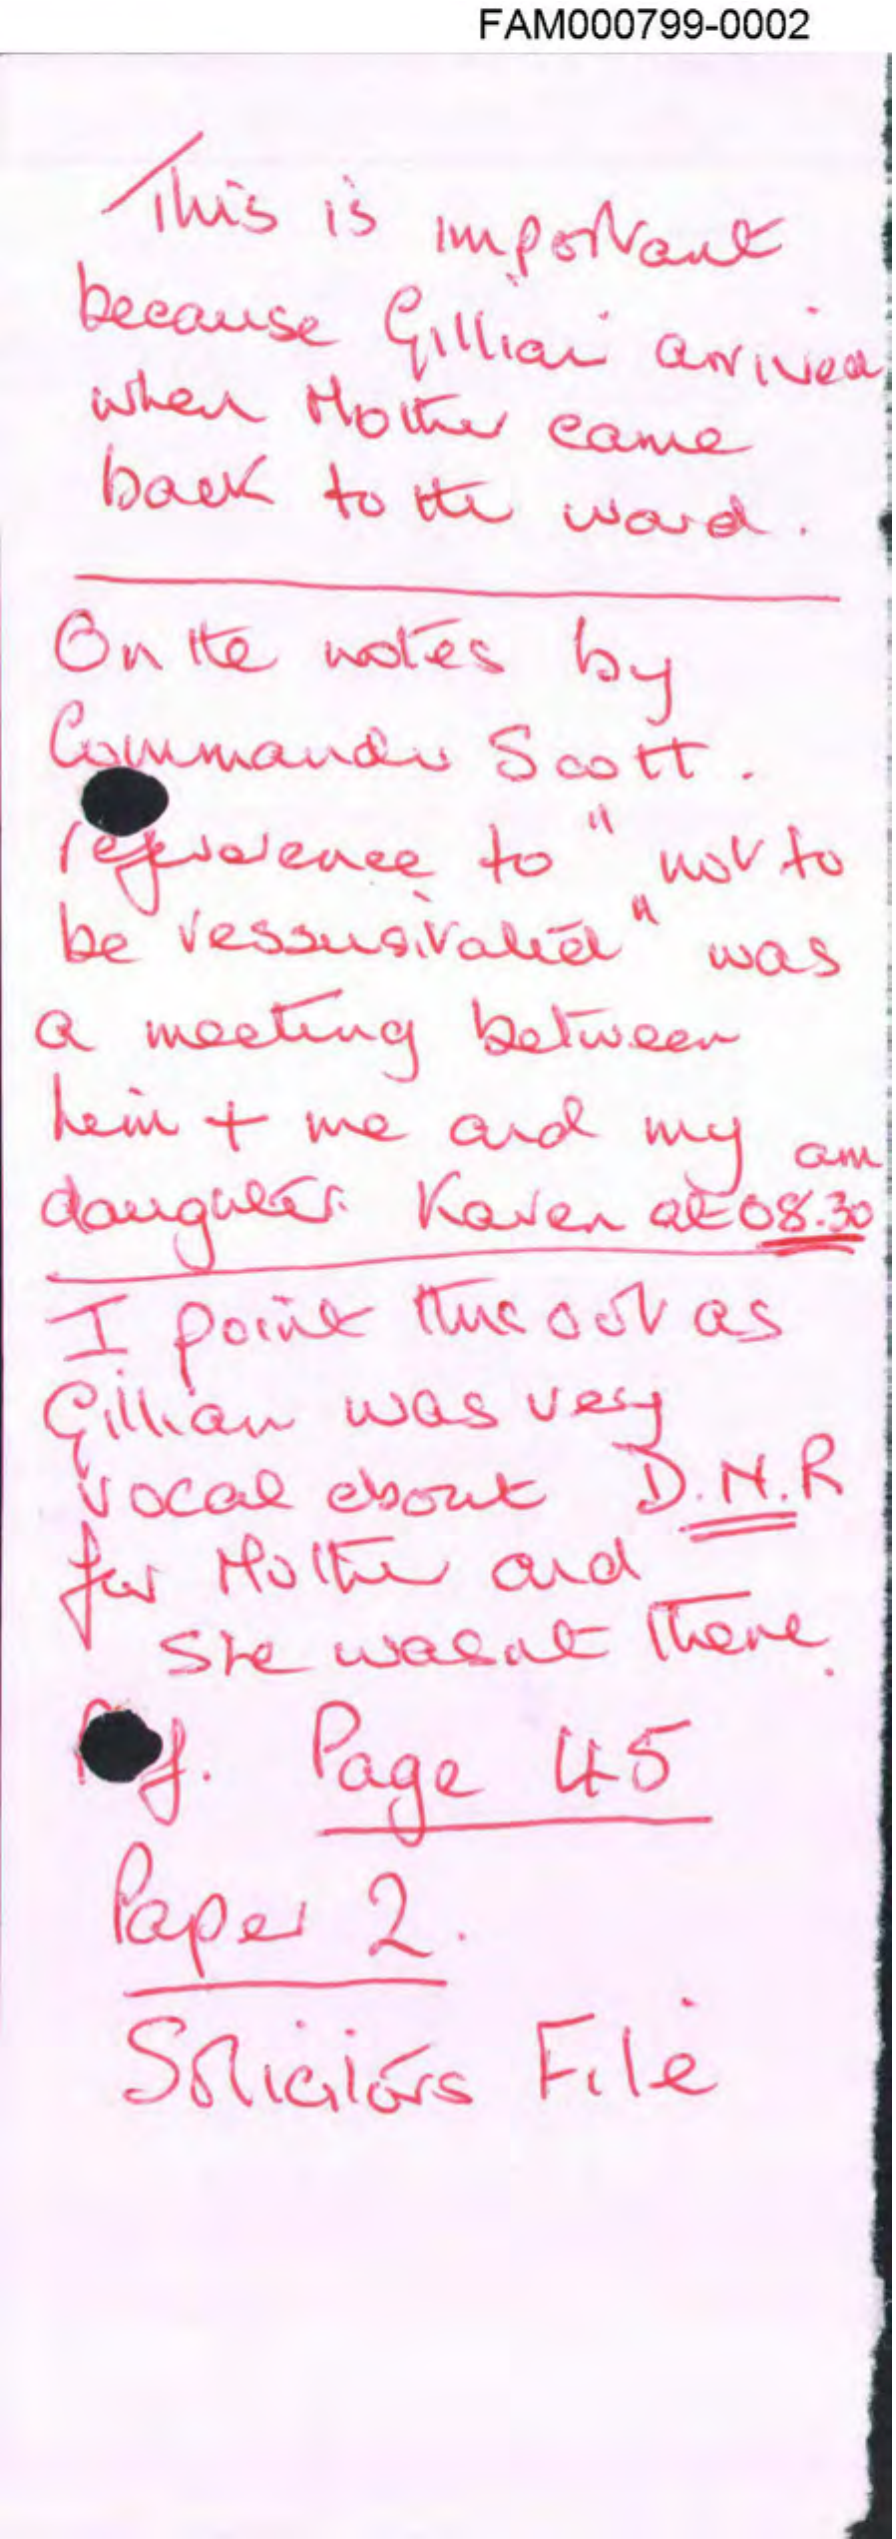 FAM000799-0002
This is important
because Gillian arrived
when Mother came
back to the ward.
On the notes by
Commander Scott.
reference to "not to
be ressusitated" was
a meeting between
him + me and my am
daughter Karen at 08.30
I point this out as
Gillian was very
vocal about D.N.R
for Mother and
she wasnt there.
Page 45
Paper 2.
Solicitors File